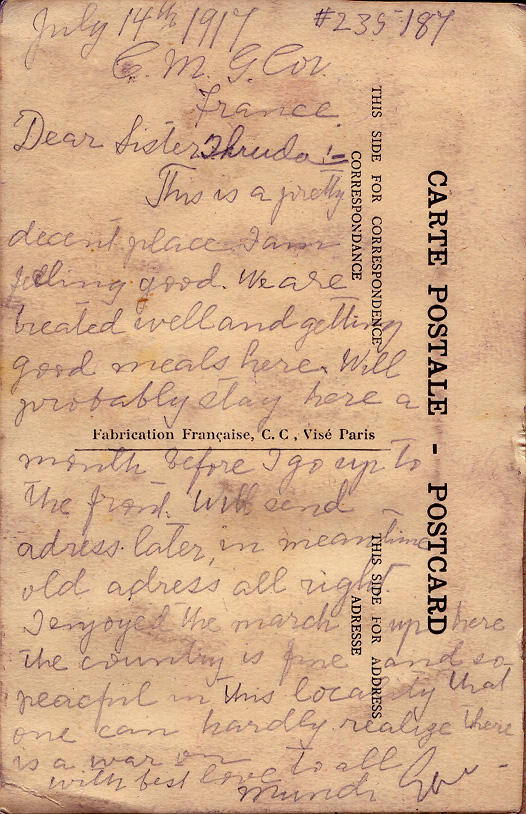 July 14th 1917 #235187
C. M. G. Cor.
France.
Dear Sister :-
This is a pretty
decent place I am
feeling good. We are
treated well and getting
good meals here. Will
probably stay here a
month before I go up to
the front. Will send
adress later, in meantime
old adress all right.
I enjoyed the march up here
the country is fine and so
peaceful in this locality that
one can hardly realize there
is a war on
with best love to all
CARTE POSTALE - POSTCARD
THIS SIDE FOR CORRESPONDENCE
CORRESPONDANCE
THIS SIDE FOR ADDRESS
ADRESSE
Fabrication Française, C. C, Visé Paris